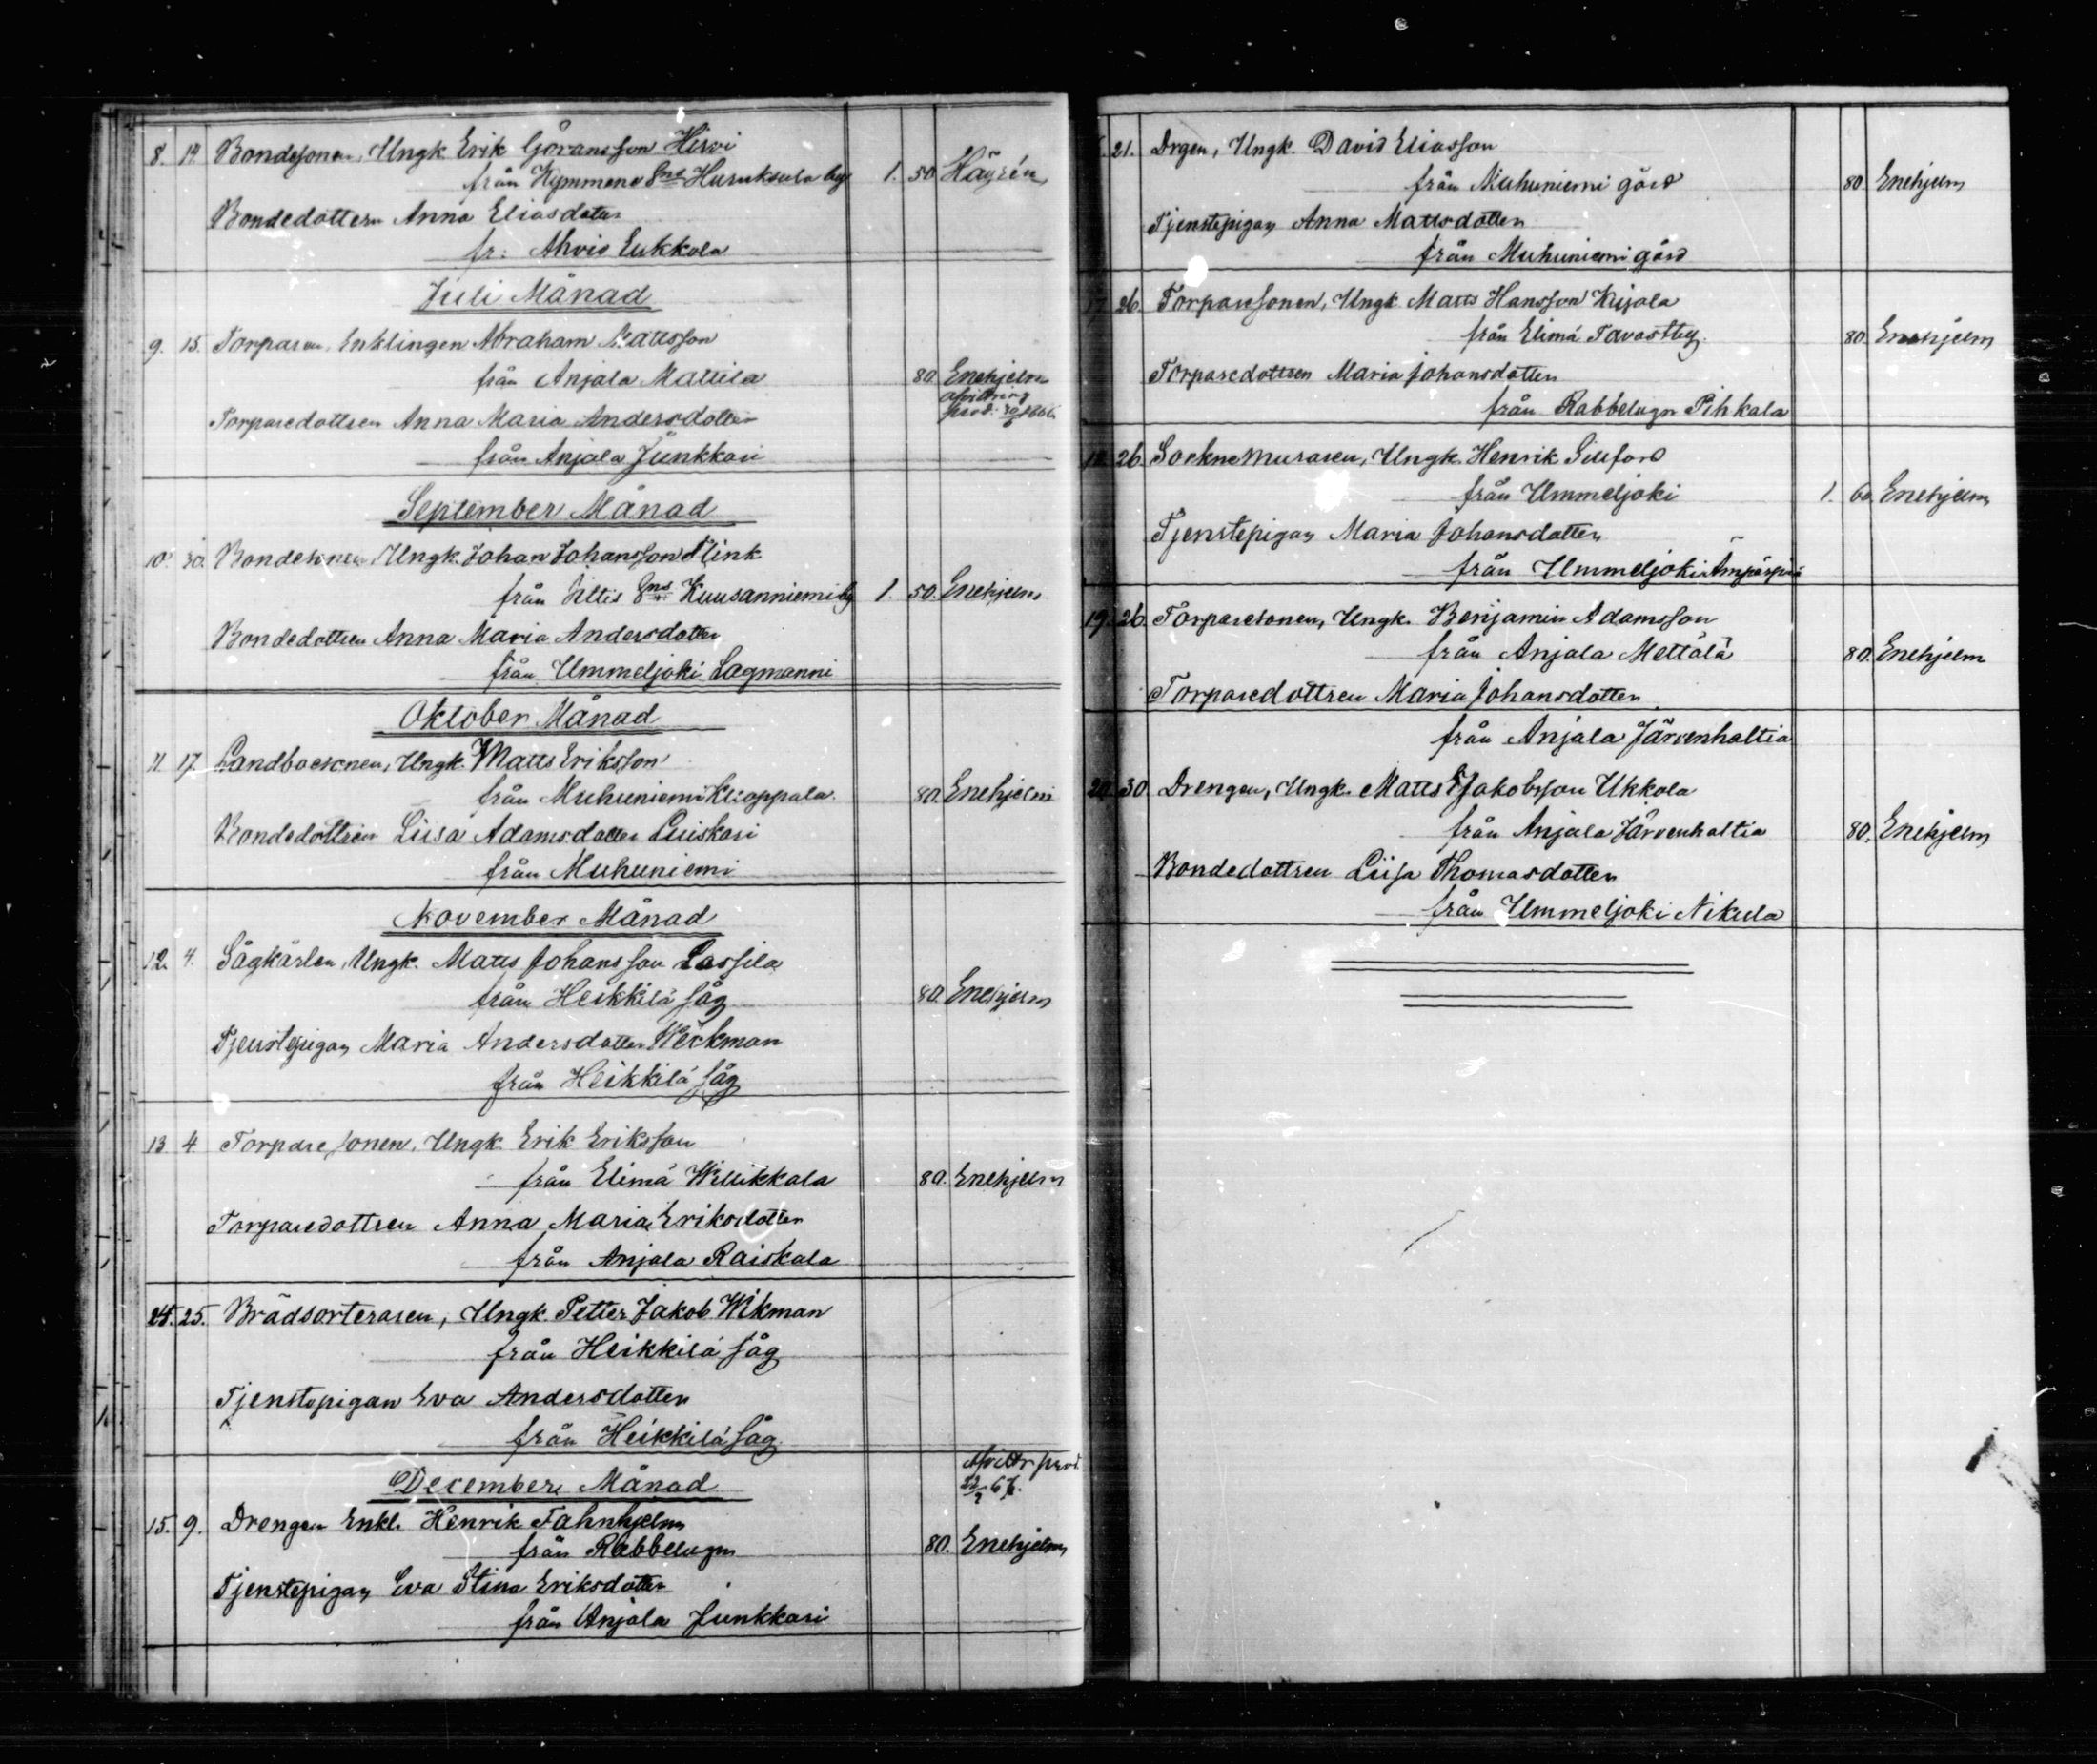 8. 14 Bondesonen, Ungk. Erik Göransson Hirvi
från Kymmene Sns Huruksela by 1. 50 Häyrén
Bondedottern Anna Eliasdotter
fr. Ahvis Eukkola
Juli Månad
9. 15. Torparen, Enklingen Abraham Mattsson
från Anjala Mattila 80. Enehjelm
afvittring
prod.
Torparedottren Anna Maria Andersdotter
från Anjala Junkkari
September Månad
10. 30. Bondesonen, Ungk. Johan Johansson Flink
från Iittis Sns Kuusanniemi by 1. 50. Enehjelm
Bondedottren Anna Maria Andersdotter
från Ummeljoki Lagmanni
Oktober Månad
11. 17. Landboesonen, Ungk. Matts Eriksson
från Muhuniemi Kuoppala. 80. Enehjelm
Bondedottren Liisa Adamsdotter Luiskari
från Muhuniemi
November Månad
12. 4. Sågkarlen, Ungk. Matts Johansson Lassila
från Heikkilä såg 80. Enehjelm
Tjenstepigan Maria Andersdotter Weckman
från Heikkilä såg
13. 4. Torparesonen, Ungk. Erik Eriksson
från Elimä Willikkala 80. Enehjelm
Torparedottren Anna Maria Eriksdotter
från Anjala Raiskala
14. 25. Brädsorteraren, Ungk. Petter Jakob Wikman
från Heikkilä såg
Tjenstepigan Eva Andersdotter
från Heikkilä såg
December Månad
Afvittr prod.
15. 9. Drengen Enkl. Henrik Fahnhjelm
från Rabbelugn 80. Enehjelm
Tjenstepigan Eva Stina Eriksdotter
från Anjala Junkkari
21. Drgen, Ungk. David Eliasson
från Muhuniemi gård 80. Enehjelm
Tjenstepigan Anna Mattsdotter
från Muhuniemi gård
17. 26. Torparesonen, Ungk. Matts Hansson Kujala
från Elimä Tavastby. 80. Enehjelm
Torparedottren Maria Johansdotter
från Rabbelugn Pihkala
18. 26. Sockne Muraren, Ungk. Henrik
från Ummeljoki 1. 60. Enehjelm
Tjenstepigan Maria Johansdotter
från Ummeljoki
19. 26. Torparesonen, Ungk. Benjamin Adamsson
från Anjala Mettälä 80. Enehjelm
Torparedottren Maria Johansdotter
från Anjala Järvenhaltia
20. 30 Drengen, Ungk. Matts Jakobsson Ukkola
från Anjala Järvenhaltia 80. Enehjelm
Bondedottren Liisa Thomasdotter
från Ummeljoki Nikula